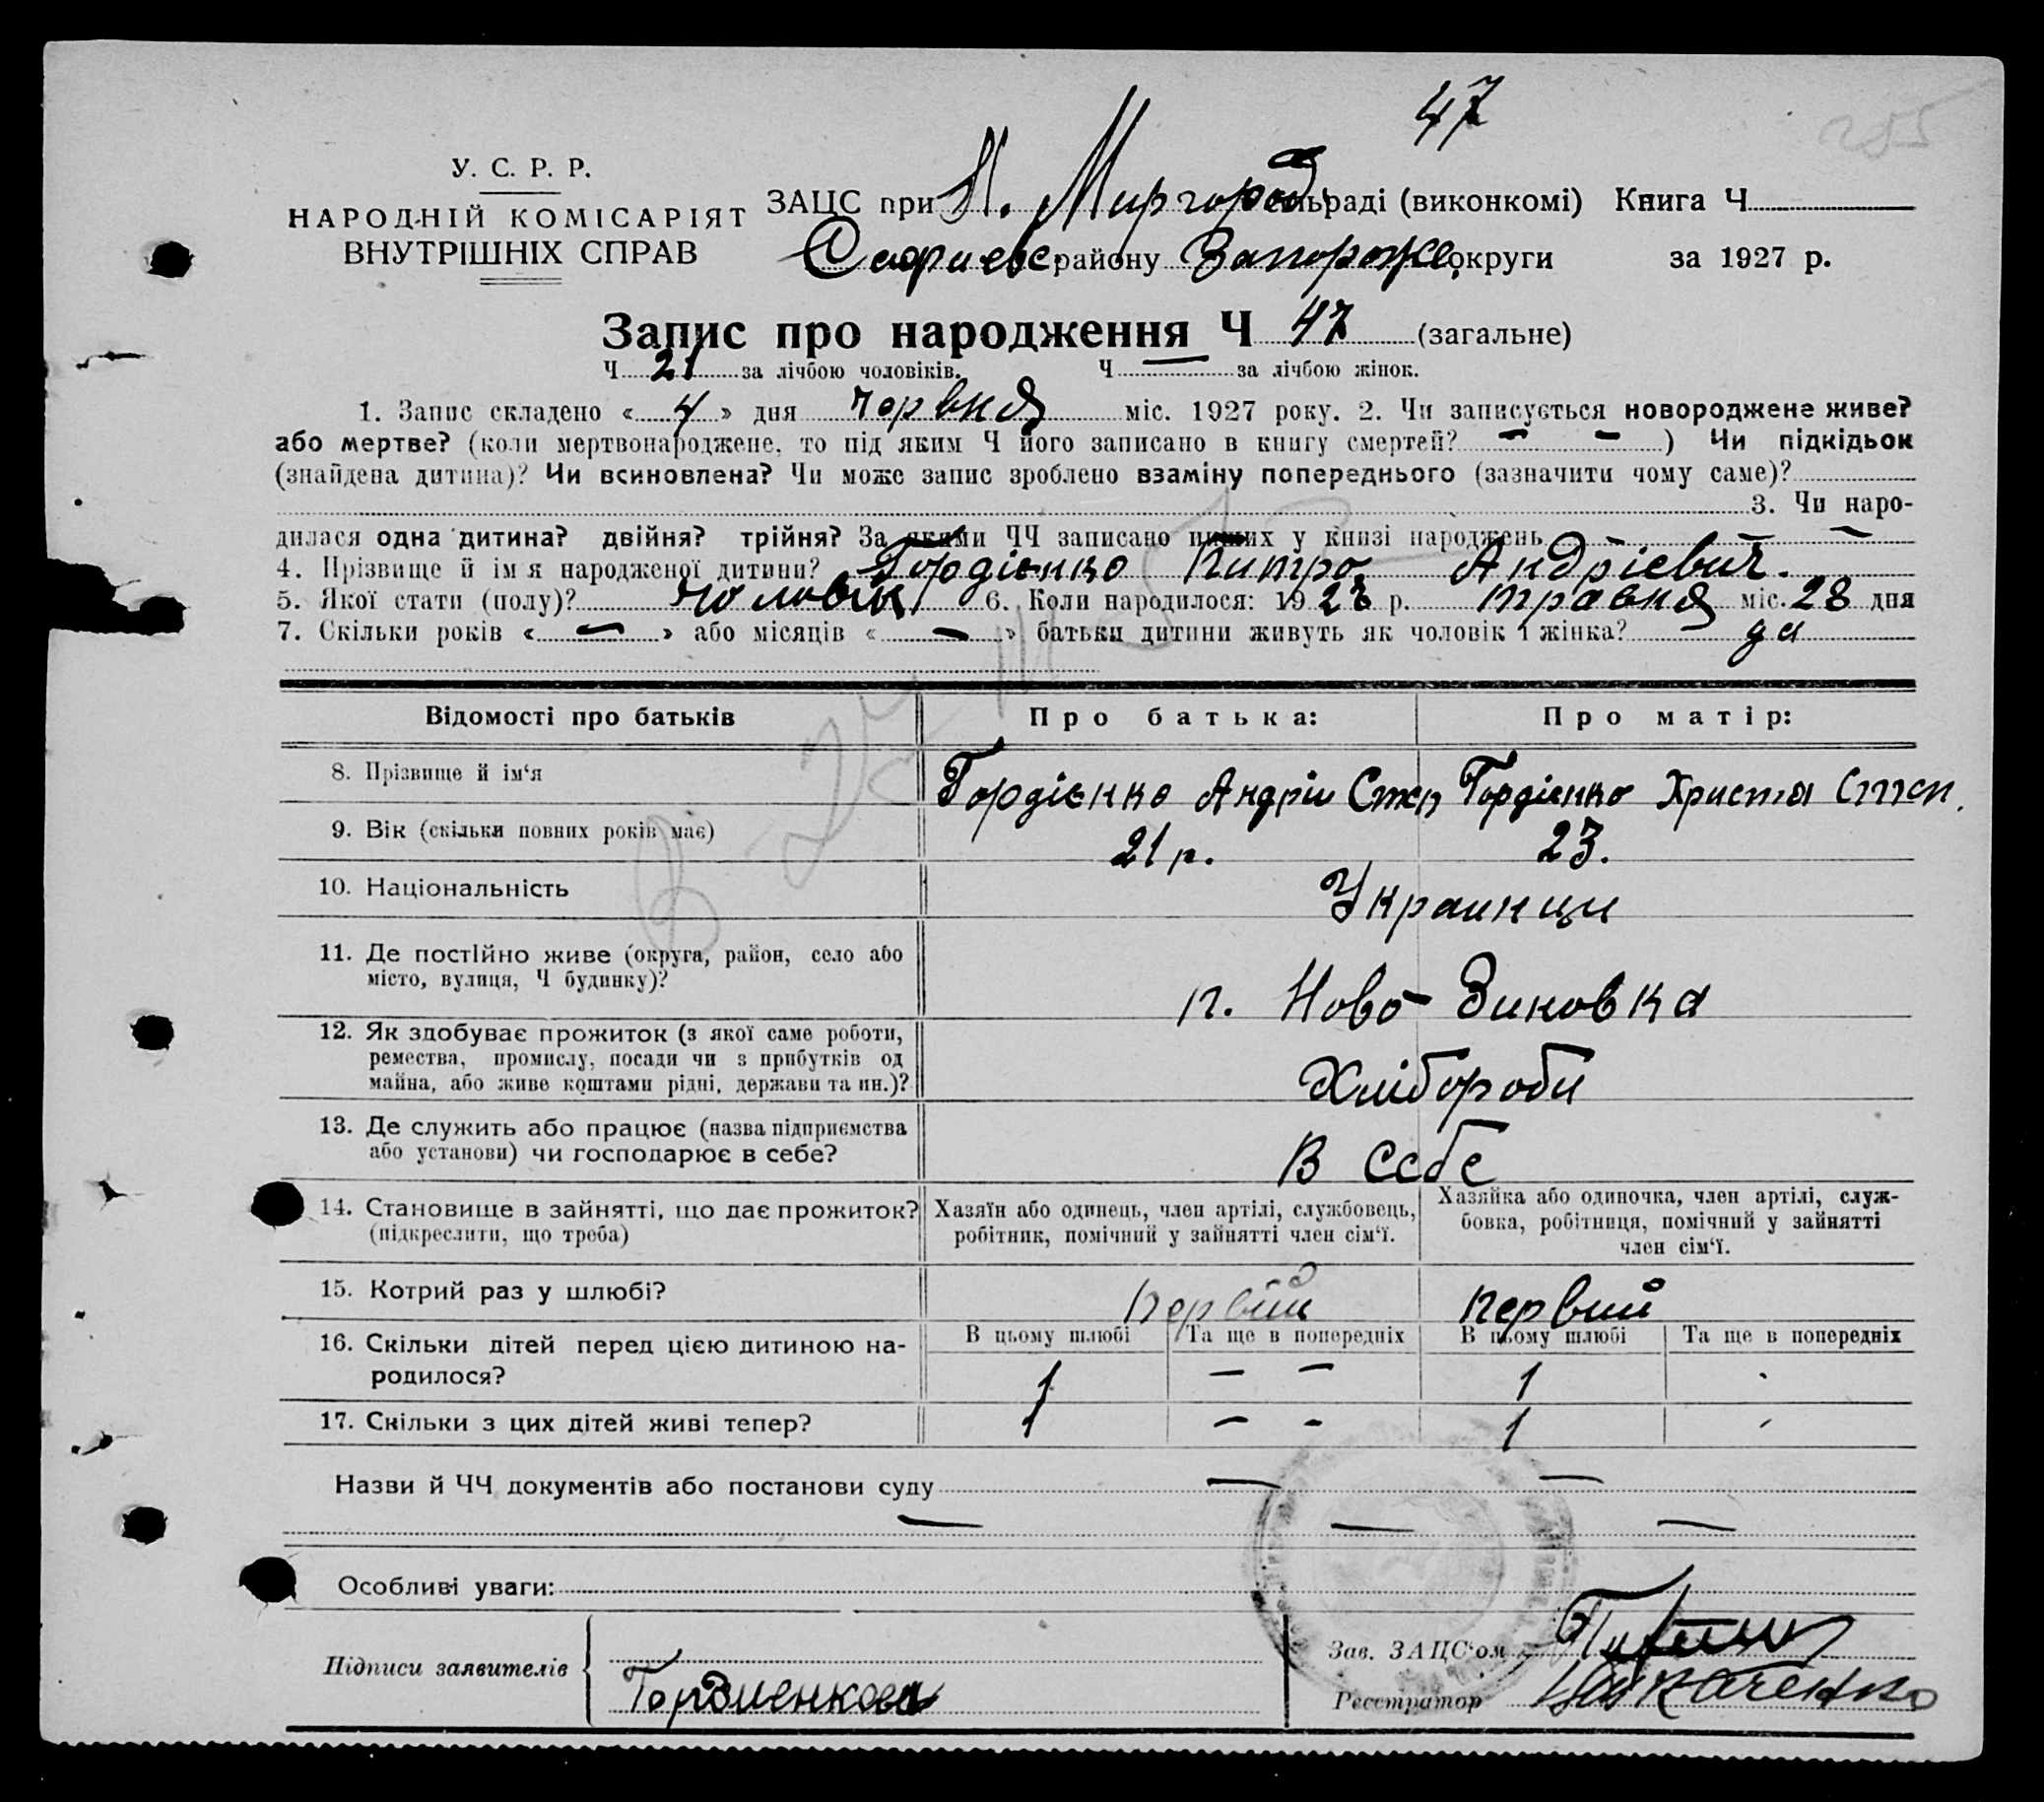 47
255
У. С. Р. Р.
НАРОДНІЙ КОМІСАРІЯТ
ВНУТРІШНІХ СПРАВ
ЗАЦС при Н. Миргород сільраді (виконкомі) Книга Ч
Софиевс. району Запорожс. округи за 1927 р.
Запис про народження Ч 47 (загальне)
Ч 21 за лічбою чоловіків. Ч — за лічбою жінок.
1. Запис складено « 4 » дня червня міс. 1927 року. 2. Чи записується новороджене живе?
або мертве? (коли мертвонароджене, то під яким Ч його записано в книгу смертей? — — ) Чи підкідьок
(знайдена дитина)? Чи всиновлена? Чи може запис зроблено взаміну попереднього (зазначити чому саме)?
3. Чи наро-
дилася одна дитина? двійня? трійня? За якими ЧЧ записано инших у книзі народжень —
4. Прізвище й ім я народженої дитини? Гордієнко Питро Андрієвич.
5. Якої стати (полу)? чоловік 6. Коли народилося: 19 р. травня міс. 28 дня
7. Скільки років « — » або місяців « — » батьки дитини живуть як чоловік і жінка? да
Відомості про батьків
Про батька:
Про матір:
8. Прізвище й ім‘я
Гордієнко Андрій Степ
Гордієнко Христя Степ.
9. Вік (скільки повних років має)
21 р.
23.
10. Національність
Украинци
11. Де постійно живе (округа, район, село або
місто, вулиця, Ч будинку)?
п. Ново-Зиковка
12. Як здобуває прожиток (з якої саме роботи,
ремества, промислу, посади чи з прибутків од
майна, або живе коштами рідні, держави та ин.)?
Хлібороби
13. Де служить або працює (назва підприємства
або установи) чи господарює в себе?
В себе
14. Становище в зайнятті, що дає прожиток?
(підкреслити, що треба)
Хазяїн або одинець, член артілі, службовець,
робітник, помічний у зайнятті член сім‘ї.
Хазяйка або одиночка, член артілі, служ-
бовка, робітниця, помічний у зайнятті
член сім‘ї.
15. Котрий раз у шлюбі?
первий
первий
16. Скільки дітей перед цією дитиною на-
родилося?
В цьому шлюбі
Та ще в попередніх
В цьому шлюбі
Та ще в попередніх
1 — — 1
17. Скільки з цих дітей живі тепер?
1 — - 1
Назви й ЧЧ документів або постанови суду — —
— — —
Особливі уваги:
Підписи заявителів
Гордиенкова
Зав. ЗАЦС‘ом
Реєстратор